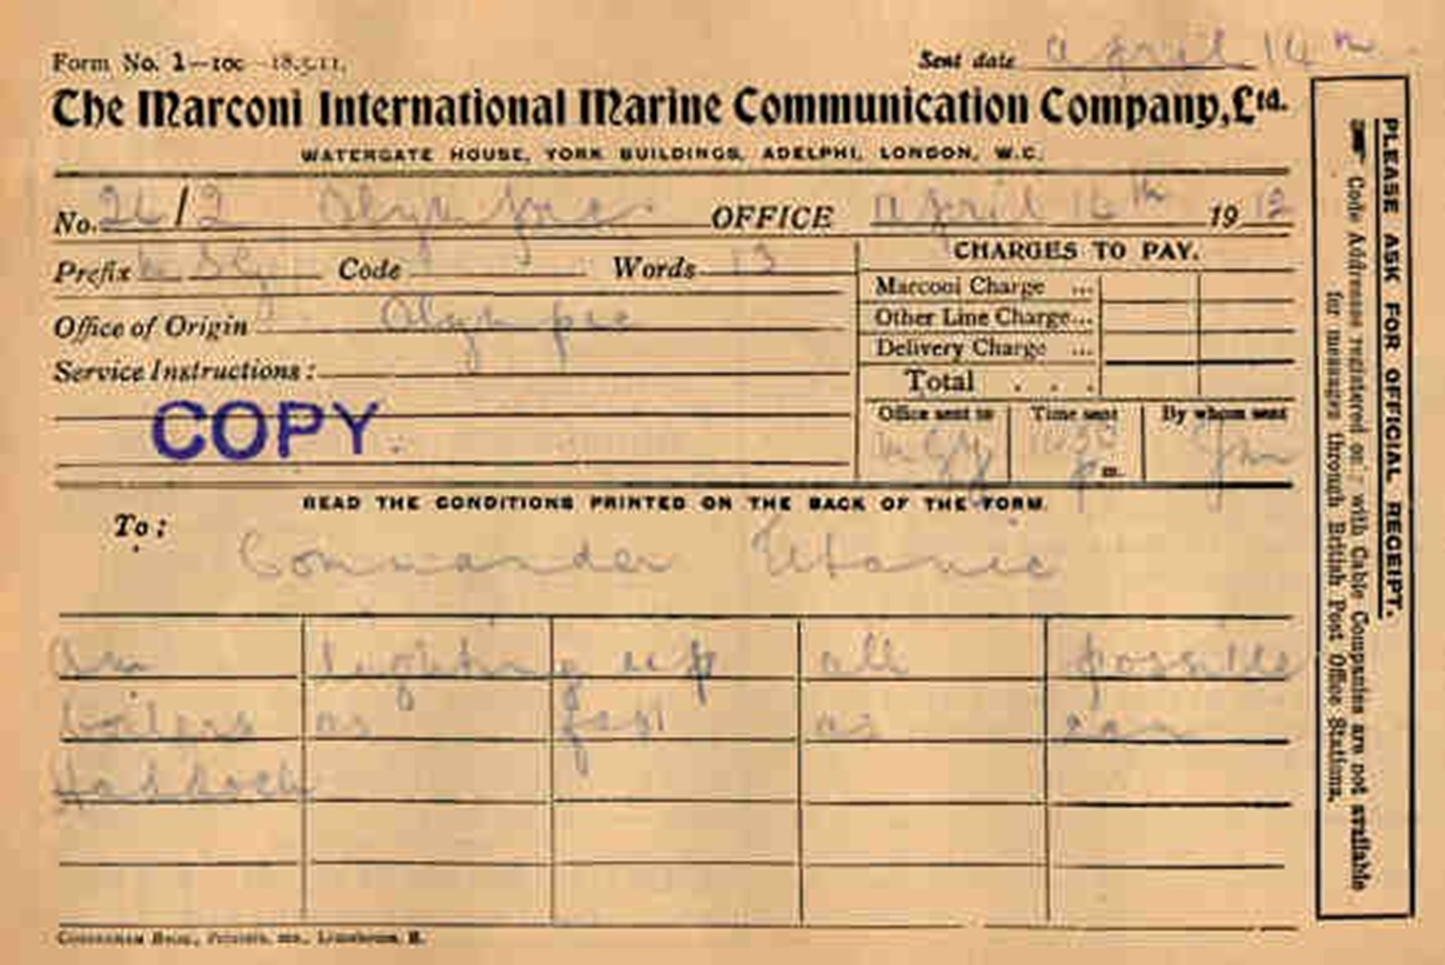 Form No. 1—100—18.5.11. Sent date April 14th
The Marconi International Marine Communication Company, Ltd.
WATERGATE HOUSE, YORK BUILDINGS, ADELPHI, LONDON, W.C.
No. /2 Olympic OFFICE April 14th 1912
Prefix Code Words 13
CHARGES TO PAY.
Marconi Charge ...
Other Line Charge...
Delivery Charge ...
Total . . .
Office of Origin Olympic
Service Instructions:
COPY
Office sent to Time sent By whom sent
m.
READ THE CONDITIONS PRINTED ON THE BACK OF THE FORM.
To: Commander Titanic
Am lighting up all possible
boilers as fast as can
Haddock
PLEASE ASK FOR OFFICIAL RECEIPT.
Code Addresses registered on with Cable Companies are not available
for messages through British Post Office Stations.